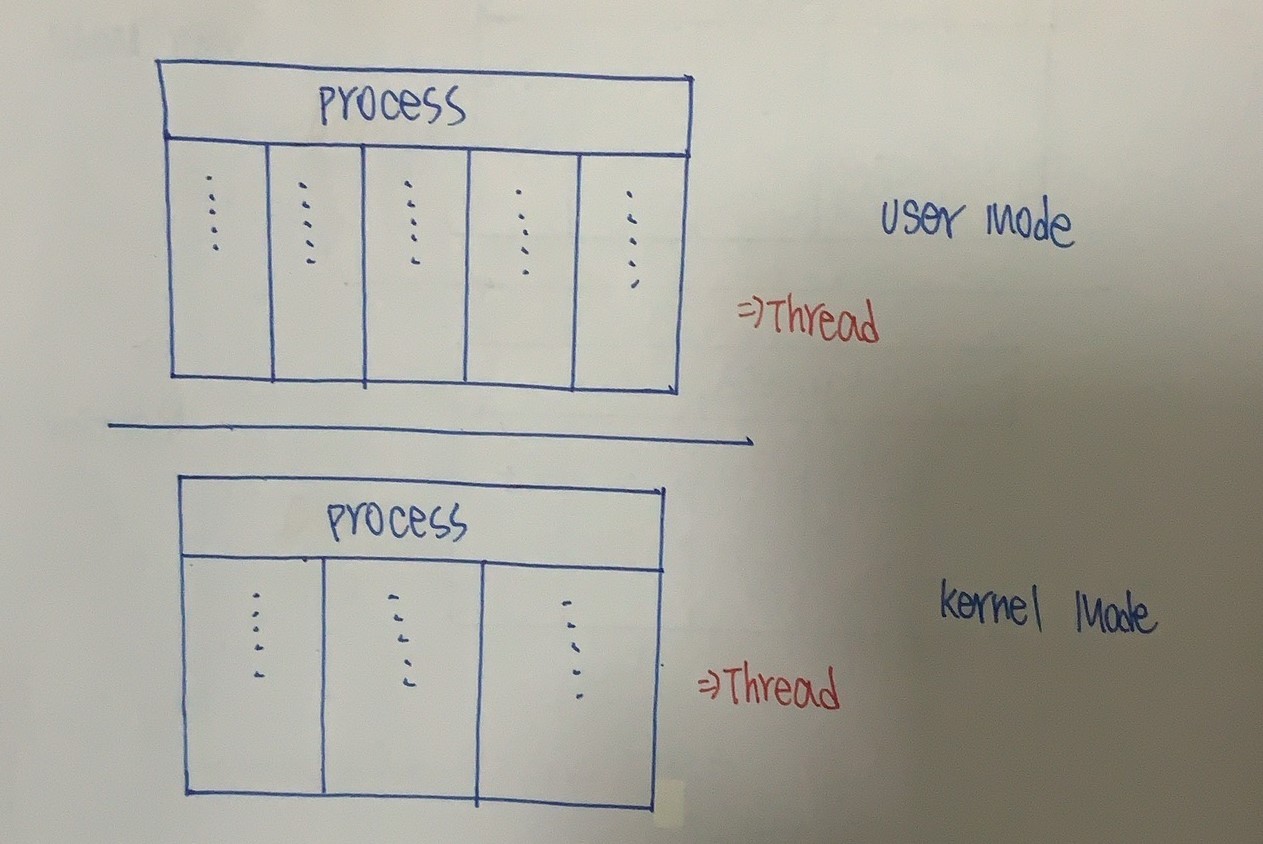 process
user mode
⇒Thread
process
kernel Mode
⇒Thread